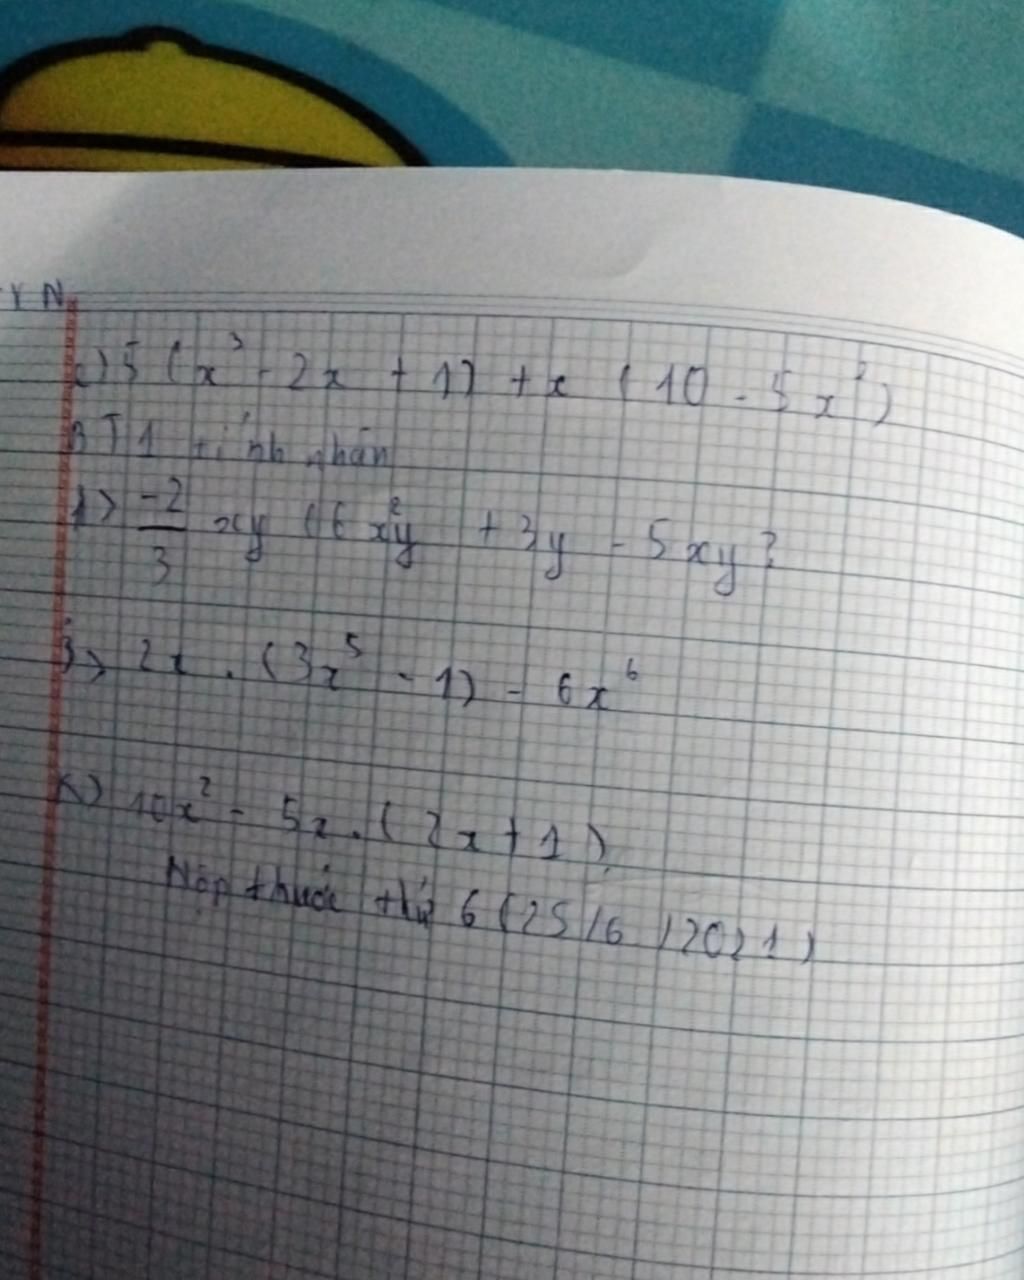 Y N
c) 5 (x³ - 2x + 1) + x (10 - 5x²)
BT1 tính nhân
1> -2/3 xy (6x²y + 3y - 5xy?
j> 2x . (3x⁵ - 1) - 6x⁶
k) 10x² - 5x . (2x + 1)
Nộp thước thứ 6 (25/6/2021)